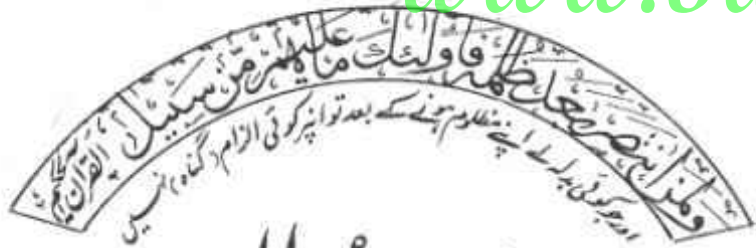 ولمن انتصر بعد ظلمه فاولئك ما عليهم من سبيل القرآن الحكيم
اور جو کوئی بدلہ لے اپنے مظلوم ہونے کے بعد تو انپر کوئی الزام (گناہ) نہیں